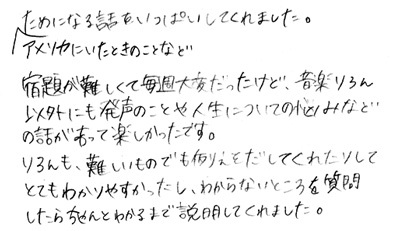 ためになる話をいっぱいしてくれました。
アメリカにいたときのことなど
宿題が難しくて毎週大変だったけど、音楽りろん
以外にも発声のことや人生についての悩みなど
の話があって楽しかったです。
りろんも、難しいものでも例えをだしてくれたりして
とてもわかりやすかったし、わからないところを質問
したらちゃんとわかるまで説明してくれました。